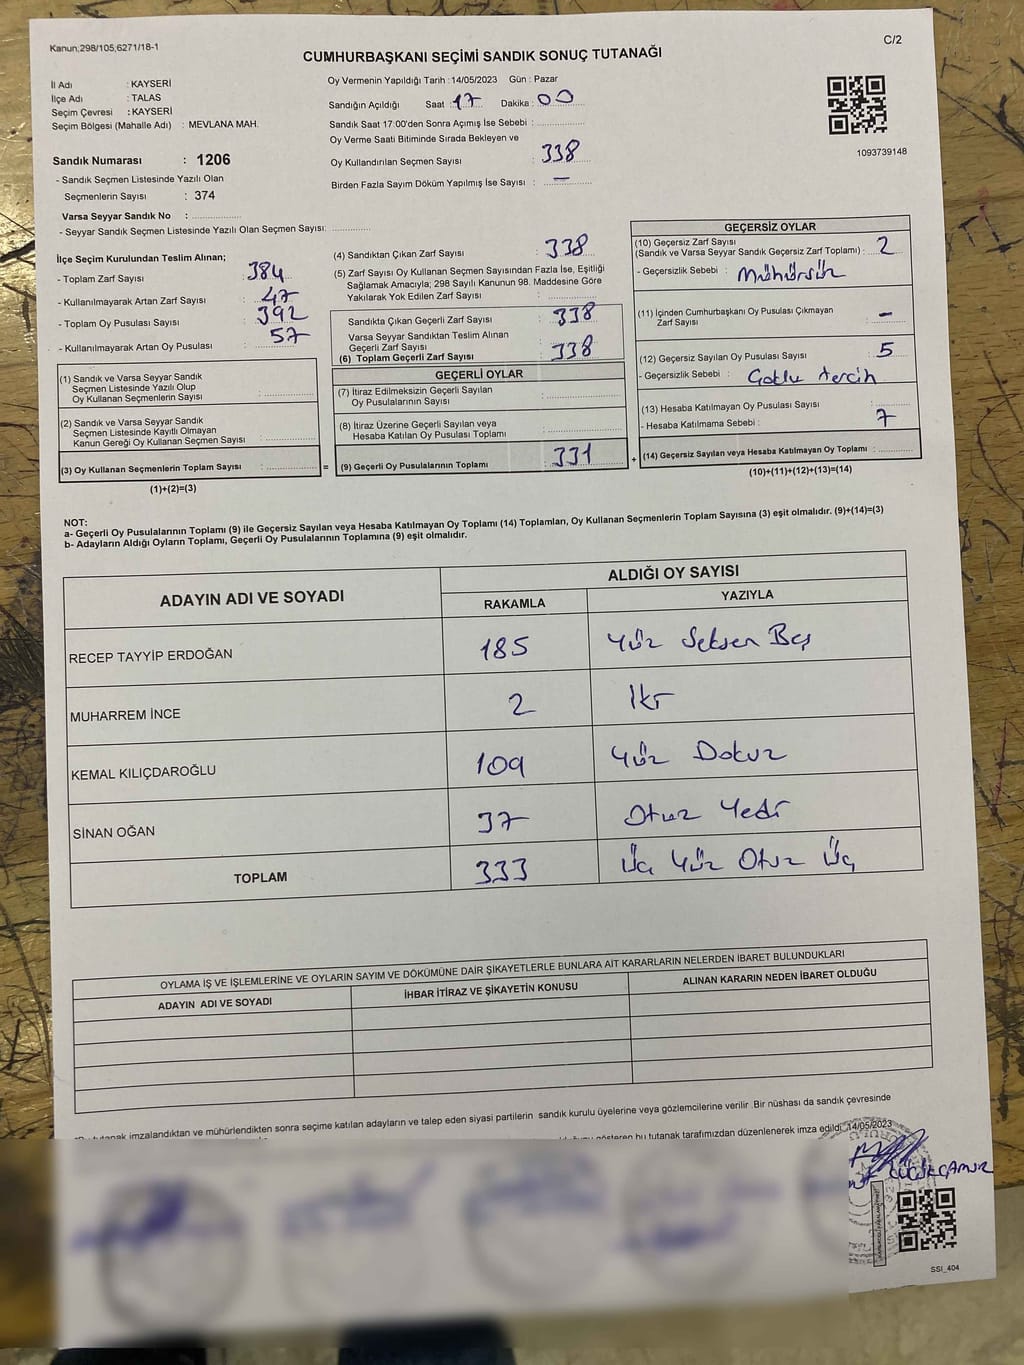 Kanun;298/105,6271/18-1
C/2
CUMHURBAŞKANI SEÇİMİ SANDIK SONUÇ TUTANAĞI
İl Adı : KAYSERİ
İlçe Adı : TALAS
Seçim Çevresi : KAYSERİ
Seçim Bölgesi (Mahalle Adı) : MEVLANA MAH.
Sandık Numarası : 1206
- Sandık Seçmen Listesinde Yazılı Olan
Seçmenlerin Sayısı : 374
Varsa Seyyar Sandık No :
- Seyyar Sandık Seçmen Listesinde Yazılı Olan Seçmen Sayısı:
Oy Vermenin Yapıldığı Tarih : 14/05/2023 Gün : Pazar
Sandığın Açıldığı Saat : 17 Dakika : 00
Sandık Saat 17:00'den Sonra Açımış İse Sebebi :
Oy Verme Saati Bitiminde Sırada Bekleyen ve
Oy Kullandırılan Seçmen Sayısı : 338
Birden Fazla Sayım Döküm Yapılmış İse Sayısı : —
1093739148
İlçe Seçim Kurulundan Teslim Alınan;
- Toplam Zarf Sayısı : 384
- Kullanılmayarak Artan Zarf Sayısı : 47
- Toplam Oy Pusulası Sayısı : 392
- Kullanılmayarak Artan Oy Pusulası : 57
(1) Sandık ve Varsa Seyyar Sandık
Seçmen Listesinde Yazılı Olup
Oy Kullanan Seçmenlerin Sayısı :
(2) Sandık ve Varsa Seyyar Sandık
Seçmen Listesinde Kayıtlı Olmayan
Kanun Gereği Oy Kullanan Seçmen Sayısı :
(3) Oy Kullanan Seçmenlerin Toplam Sayısı : =
(1)+(2)=(3)
(4) Sandıktan Çıkan Zarf Sayısı : 338
(5) Zarf Sayısı Oy Kullanan Seçmen Sayısından Fazla İse, Eşitliği
Sağlamak Amacıyla; 298 Sayılı Kanunun 98. Maddesine Göre
Yakılarak Yok Edilen Zarf Sayısı :
Sandıkta Çıkan Geçerli Zarf Sayısı : 338
Varsa Seyyar Sandıktan Teslim Alınan
Geçerli Zarf Sayısı :
(6) Toplam Geçerli Zarf Sayısı : 338
GEÇERLİ OYLAR
(7) İtiraz Edilmeksizin Geçerli Sayılan
Oy Pusulalarının Sayısı :
(8) İtiraz Üzerine Geçerli Sayılan veya
Hesaba Katılan Oy Pusulası Toplamı :
(9) Geçerli Oy Pusulalarının Toplamı : 331 +
GEÇERSİZ OYLAR
(10) Geçersiz Zarf Sayısı
(Sandık ve Varsa Seyyar Sandık Geçersiz Zarf Toplamı) : 2
- Geçersizlik Sebebi : Mühürsüz
(11) İçinden Cumhurbaşkanı Oy Pusulası Çıkmayan
Zarf Sayısı : —
(12) Geçersiz Sayılan Oy Pusulası Sayısı : 5
- Geçersizlik Sebebi : Çoklu tercih
(13) Hesaba Katılmayan Oy Pusulası Sayısı :
- Hesaba Katılmama Sebebi : 7
(14) Geçersiz Sayılan veya Hesaba Katılmayan Oy Toplamı :
(10)+(11)+(12)+(13)=(14)
NOT:
a- Geçerli Oy Pusulalarının Toplamı (9) ile Geçersiz Sayılan veya Hesaba Katılmayan Oy Toplamı (14) Toplamları, Oy Kullanan Seçmenlerin Toplam Sayısına (3) eşit olmalıdır. (9)+(14)=(3)
b- Adayların Aldığı Oyların Toplamı, Geçerli Oy Pusulalarının Toplamına (9) eşit olmalıdır.
ADAYIN ADI VE SOYADI ALDIĞI OY SAYISI
RAKAMLA YAZIYLA
RECEP TAYYİP ERDOĞAN 185 Yüz Seksen Beş
MUHARREM İNCE 2 İki
KEMAL KILIÇDAROĞLU 109 Yüz Dokuz
SİNAN OĞAN 37 Otuz Yedi
TOPLAM 333 Üç Yüz Otuz Üç
OYLAMA İŞ VE İŞLEMLERİNE VE OYLARIN SAYIM VE DÖKÜMÜNE DAİR ŞİKAYETLERLE BUNLARA AİT KARARLARIN NELERDEN İBARET BULUNDUKLARI
ADAYIN ADI VE SOYADI İHBAR İTİRAZ VE ŞİKAYETİN KONUSU ALINAN KARARIN NEDEN İBARET OLDUĞU
tutanak imzalandıktan ve mühürlendikten sonra seçime katılan adayların ve talep eden siyasi partilerin sandık kurulu üyelerine veya gözlemcilerine verilir .Bir nüshası da sandık çevresinde
gösteren bu tutanak tarafımızdan düzenlenerek imza edildi. 14/05/2023
SSİ_404